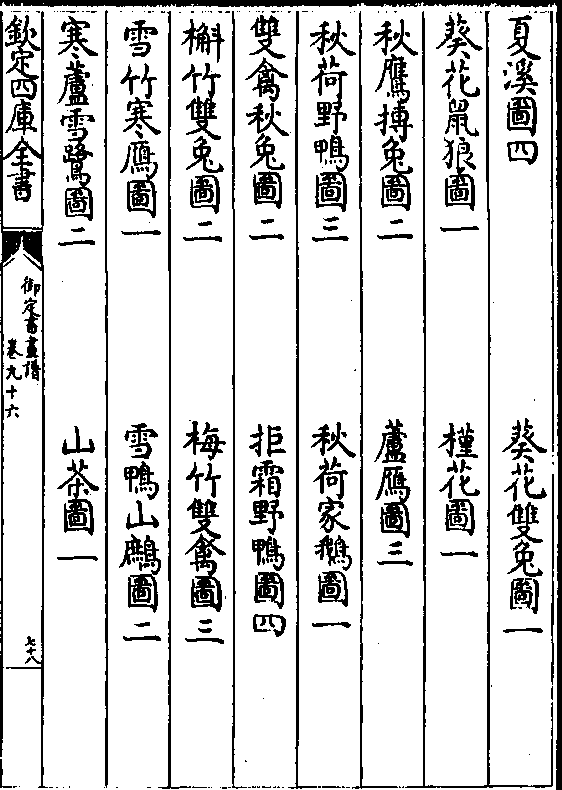 夏溪圖四 葵花雙兔圖一
葵花鼠狼圖一 槿花圖一
秋鷹搏兔圖二 蘆鴈圖三
秋荷野鴨圖三 秋荷家鵝圖一
雙禽秋兔圖二 拒霜野鴨圖四
槲竹雙兔圖二 梅竹雙禽圖三
雪竹寒鴈圖一 雪鴨山鷓圖二
寒蘆雪鷺圖二 山茶圖一
欽定四庫全書
御定書畫譜
卷九十六
七十八